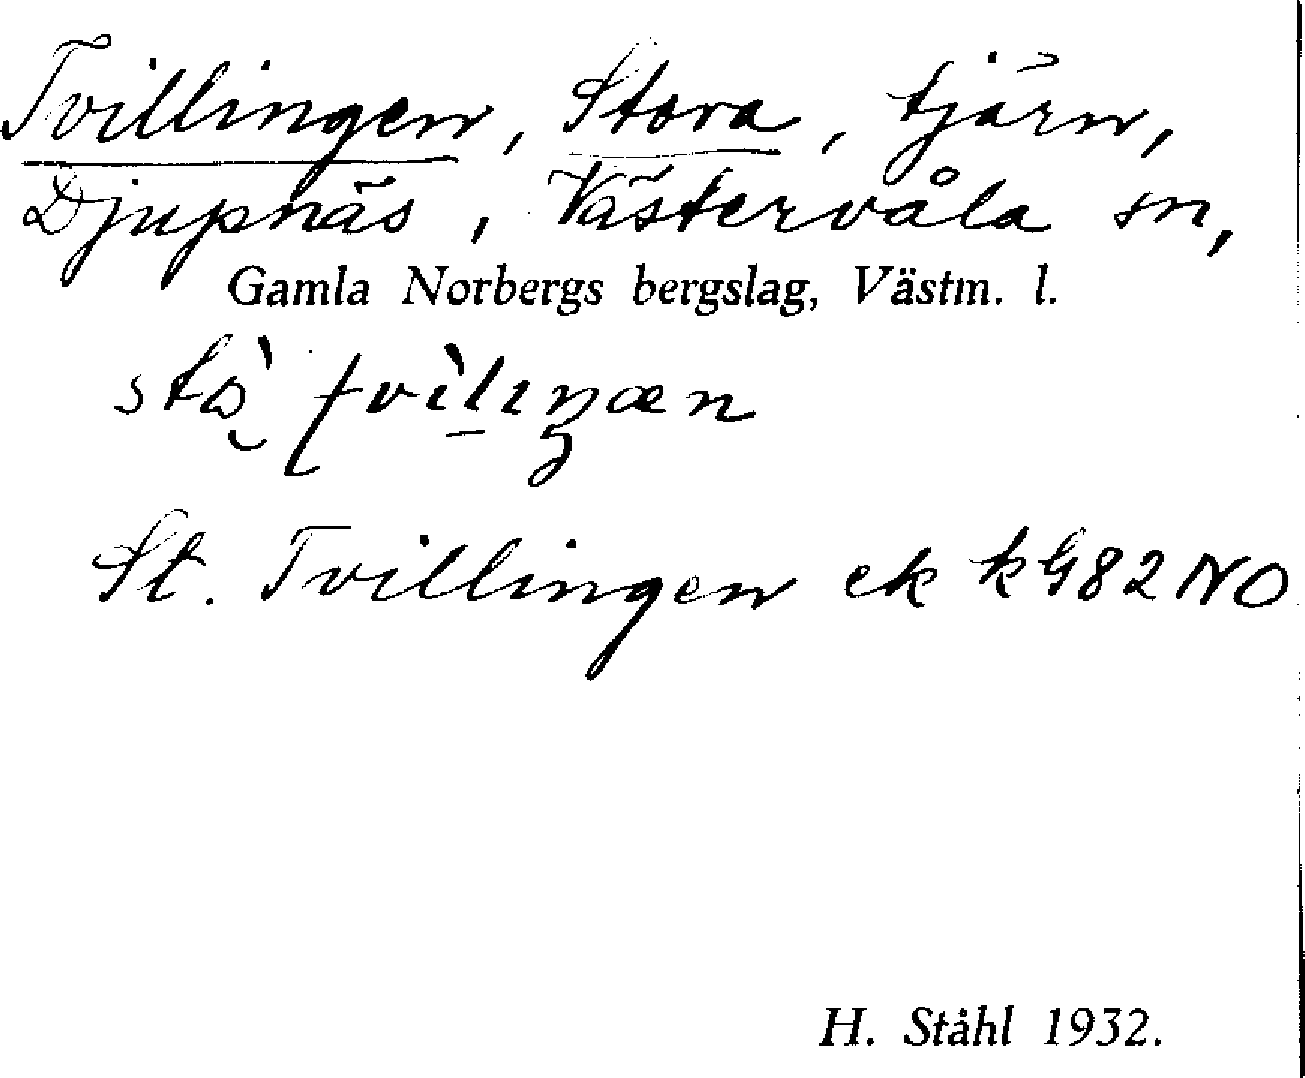 Tvillingen, Stora, tjärn,
Djupnäs, Västervåla sn,
Gamla Norbergs bergslag, Västm. l.
St. Tvillingen ek k G82 NO
H. Ståhl 1932.